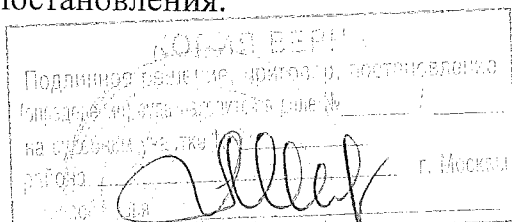 постановления.
КОПИЯ ВЕРНА
Подлинное решение, приговор, постановление
(определение) находится в деле № /
на судебном участке
района г. Москвы